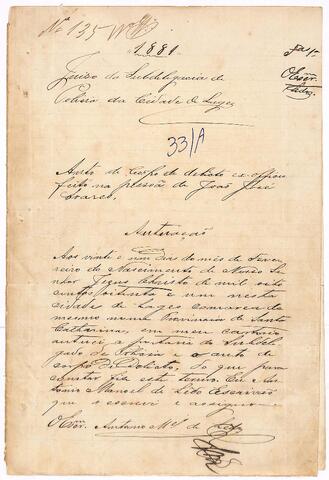 Nº 135
1881
Juizo da Subdelegacia de
Policia da Cidade de Lages
O Escrm.
33/A
Auto de Corpo de delicto ex-officio
feito na pessôa de João José
Soares.
Autoação
Aos vinte e um dias do mes de Feve-
reiro do Nascimento de Nosso Se-
nhor Jezus Christo de mil oito
centos oitenta e um nesta
cidade de Lages comarca do
mesmo nome Provincia de Santa
Catharina, em meu cartorio
autuei a portaria do Subdele
gado de Policia e o auto de
corpo de Delicto, do que para
constar fiz este termo. Eu An-
tonio Manoel de Escrivão
que o escrevi e assigno
O Escrm. Antonio Mel. de